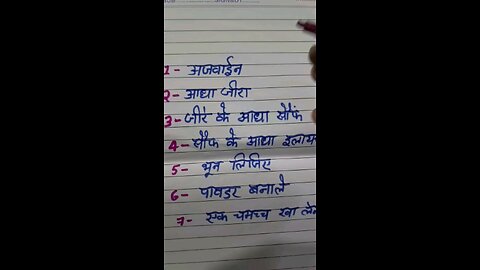 1- अजवाईन
2- आधा जीरा
3- जीरे के आधा सौफं
4- सौफ के आधा इलाय
5- भून लिजिए
6- पावडर बनाले
7- एक चमच्च खा ले